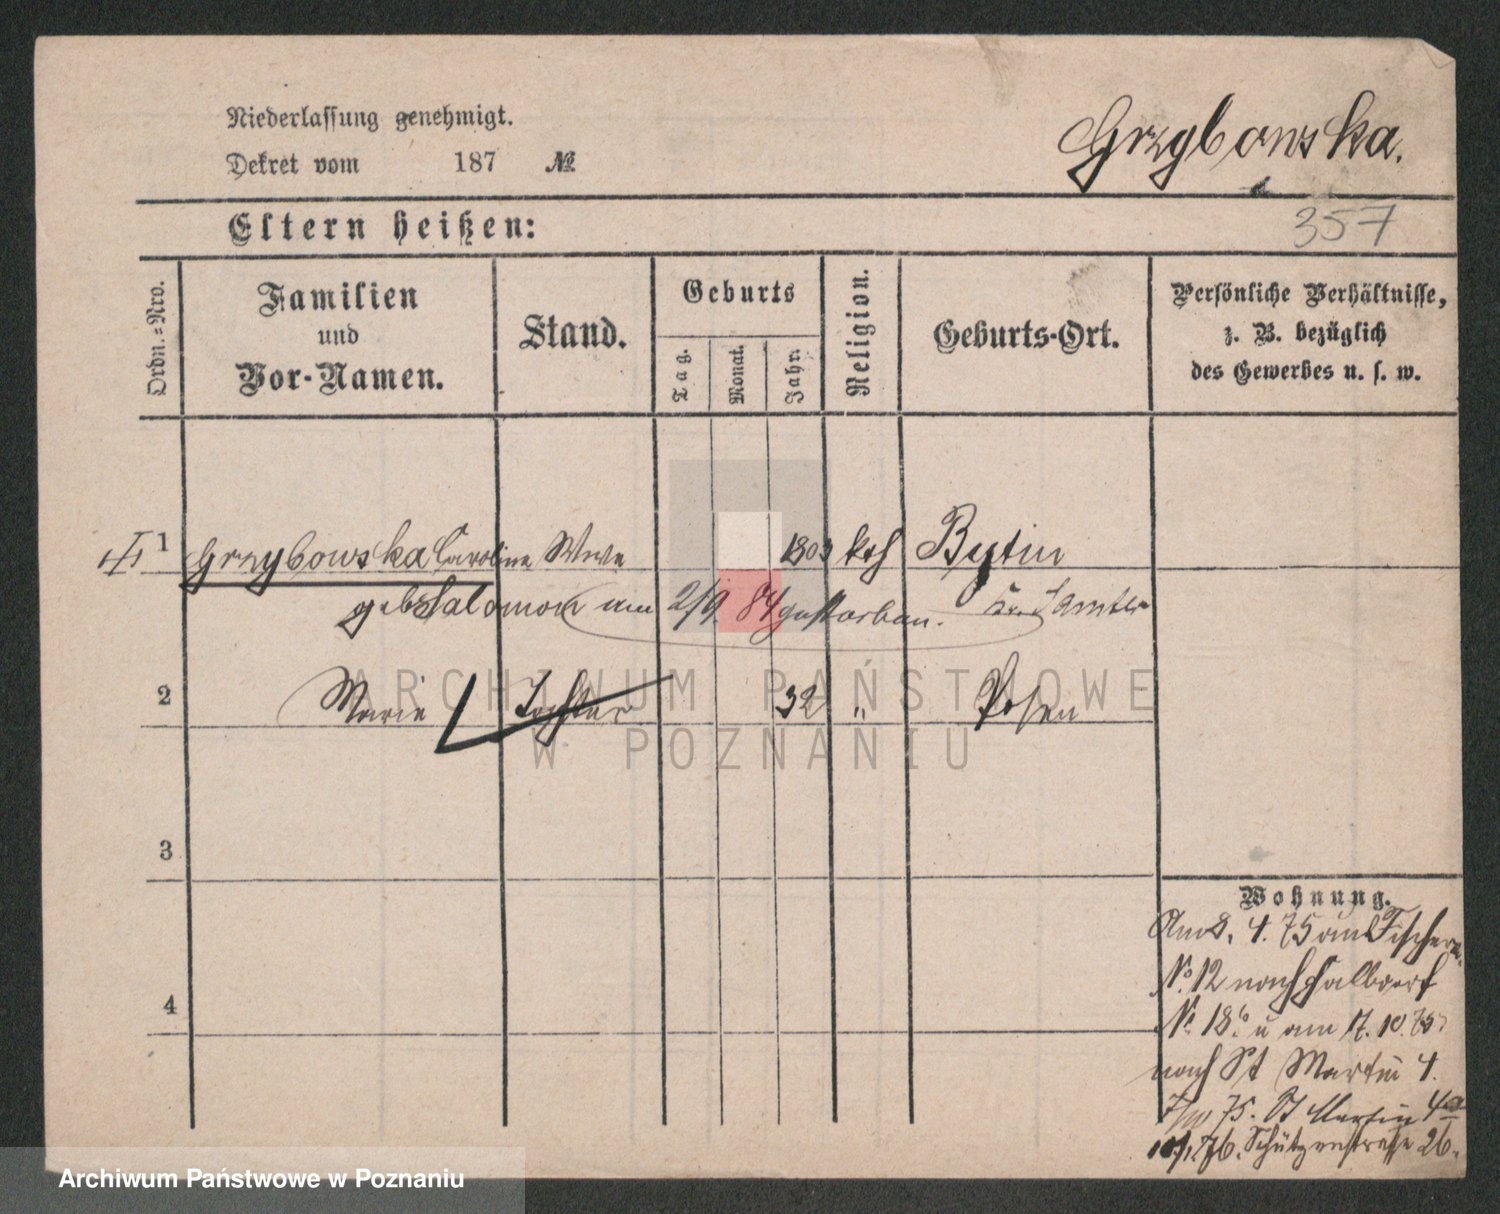 Niederlassung genehmigt.
Dekret vom 187 №
Grzybowska.
Eltern heißen:
357
Ordn.=Nro.
Familien
und
Vor-Namen.
Stand.
Geburts
Tag.
Monat.
Jahr.
Religion.
Geburts-Ort.
Persönliche Verhältnisse,
z. B. bezüglich
des Gewerbes u. s. w.
1 Grzybowska Caroline Wwe 1803 kth Bytin
geb Salomon am 2/9. 84 gestorben. Kr. Samter
2 Marie Tochter 32 " Posen
3
4
Wohnung.
Am 8. 4. 75 aus Fischerei
No. 12 nach Halbdorf
No. 18b. u am 17. 10. 75
nach St Martin 4.
75. St Martin 4a
76. Schützenstrasse 26.
ARCHIWUM PAŃSTWOWE
W POZNANIU
Archiwum Państwowe w Poznaniu